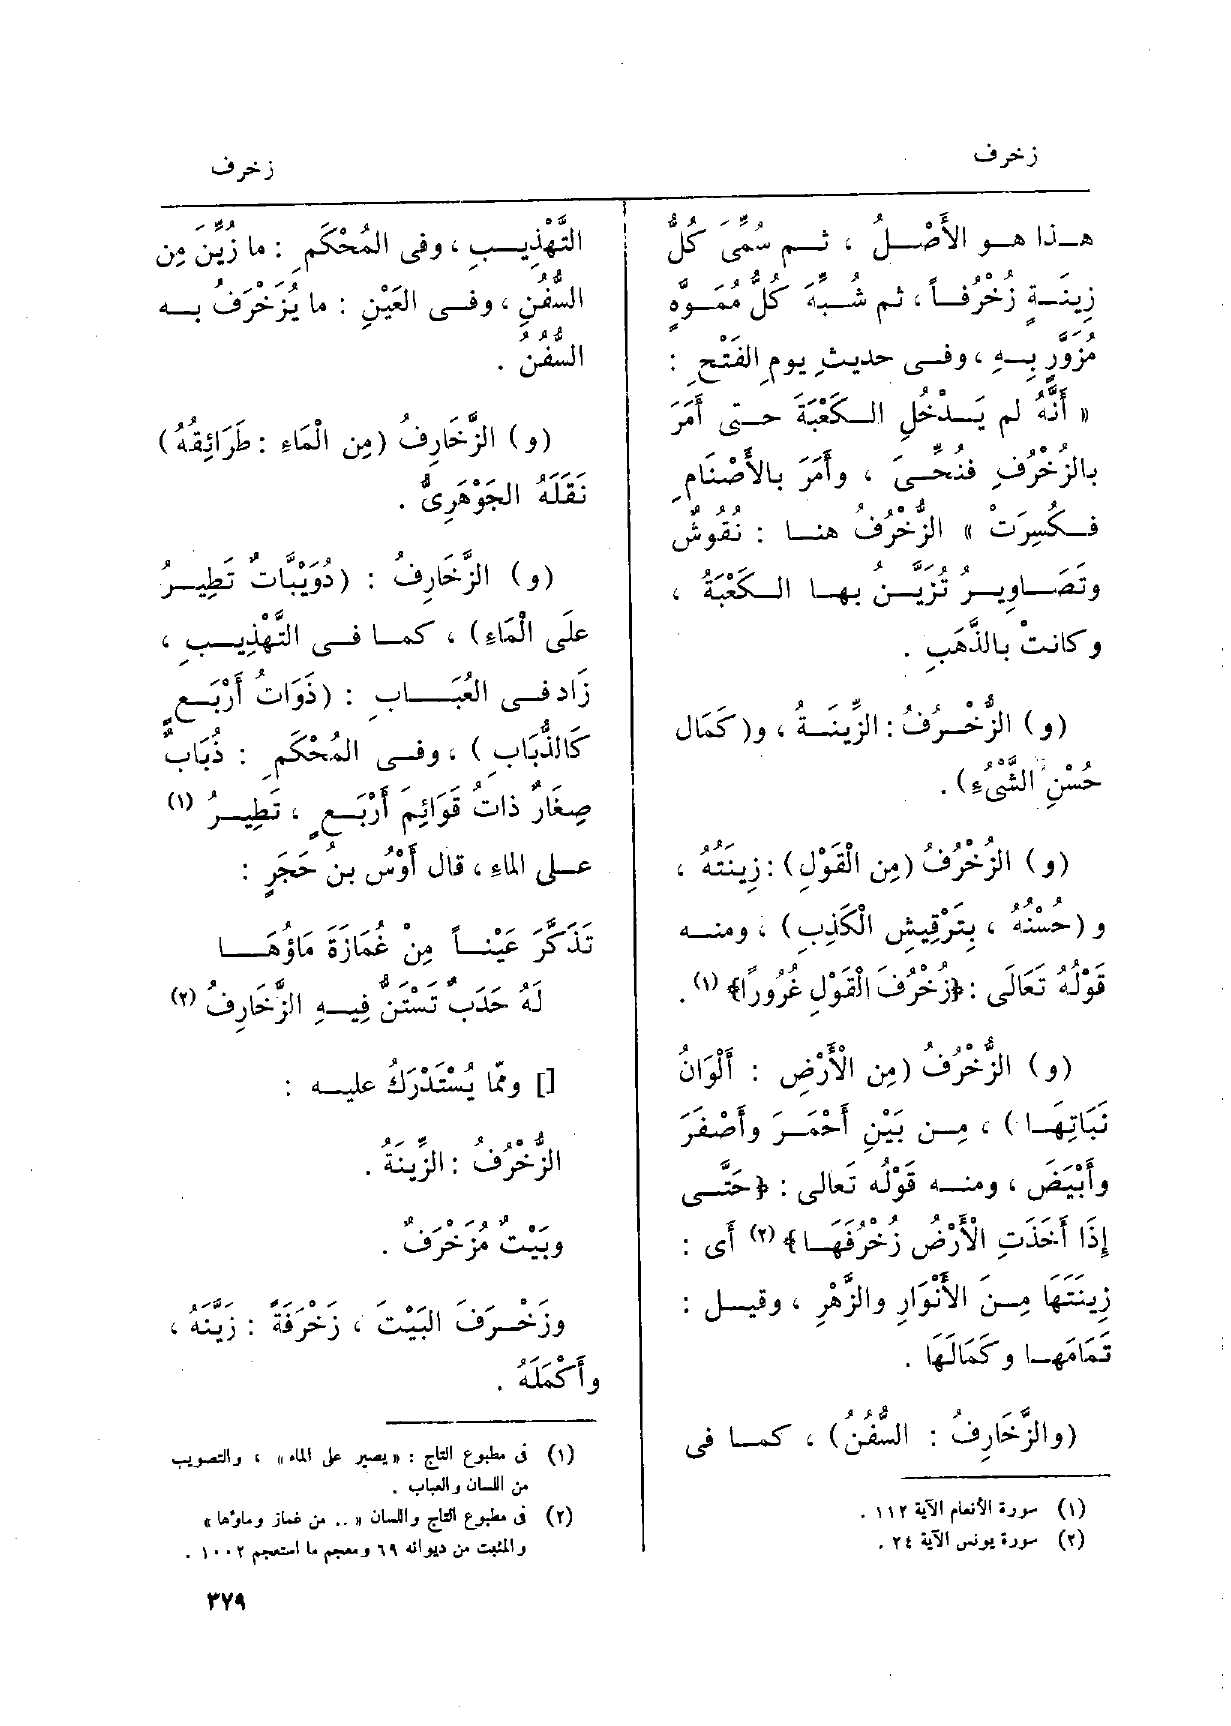 زخرف
زخرف
هـذا هـو الأَصْـلُ ، ثـم سُمِّىَ كُلُّ
زِينَـةٍ زُخْرُفـاً ، ثم شُبِّهَ كُلُّ مُمَوَّهٍ
مُزَوَّرٍ بِـهِ ، وفـى حديثِ يومِ الفَتْحِ :
« أَنَّهُ لم يَـدْخُلِ الـكَعْبَةَ حـتى أَمَرَ
بالزُخْرُفِ فنُحِّـىَ ، وأَمَرَ بالأَصْنَامِ
فـكُسِرَتْ » الزُّخْرُفُ هنـا : نُقُوشٌ
وتَصَـاوِيـرُ تُزَيَّـنُ بهـا الـكَعْبَةُ ،
وكانتْ بالذَّهَبِ .
(و) الزُّخْـرُفُ : الزِّينَـةُ ، و(كَمَال
حُسْنِ الشَّىْءِ) .
(و) الزُّخْرُفُ (مِن الْقَوْلِ) : زِينَتُهُ ،
و (حُسْنُهُ ، بِتَرْقِيشِ الْكَذِبِ) ، ومنـه
قَوْلُهُ تَعَالَى : ﴿زُخْرُفَ الْقَوْلِ غُرُورًا﴾ (١) .
(و) الزُّخْرُفُ (مِن الْأَرْضِ : أَلْوَانُ
نَبَاتِهَـا ) ، مِـن بَيْنِ أَحْمَـرَ وأَصْفَرَ
وأَبْيَضَ ، ومنـه قَوْلُه تَعالى : ﴿حَتَّـى
إِذَا أَخَذَتِ الْأَرْضُ زُخْرُفَهَـا﴾ (٢) أَى :
زِينَتَهَا مِـنَ الأَنْوَارِ والزَّهْرِ ، وقيـل :
تَمَامَهـا وكَمَالَهَا .
(والزَّخَارِفُ : السُّفُنُ) ، كمـا فى
(١) سورة الأنعام الآية ١١٢ .
(٢) سورة يونس الآية ٢٤ .
التَّهْذِيـبِ ، وفى المُحْكَمِ : ما زُيِّنَ مِن
السُّفُنِ ، وفـى العَيْنِ : ما يُزَخْرَفُ بـه
السُّفُنُ .
(و) الزَّخَارِفُ (مِن الْمَاءِ : طَرَائِقُهُ)
نَقَلَهُ الجَوْهَرِىُّ .
(و) الزَّخَارِفُ : (دُوَيْبَّاتٌ تَطِيـرُ
علَى الْمَاءِ) ، كمـا فـى التَّهْذِيـبِ ،
زَاد فـى العُبَـابِ : (ذَوَاتُ أَرْبَـعٍ
كَالذُّبَابِ ) ، وفـى المُحْكَمِ : ذُبَابٌ
صِغَارٌ ذاتُ قَوَائِمَ أَرْبَـعٍ ، تَطِيـرُ (١)
علـى الماءِ ، قال أَوْسُ بنُ حَجَرٍ :
تَذَكَّرَ عَيْنـاً مِنْ غُمَازَةَ مَاؤُهَـا
لَهُ حَدَبٌ تَسْتَنُّ فِيـهِ الزَّخَارِفُ (٢)
[] وممّا يُسْتَدْرَكُ عليـه :
الزُّخْرُفُ : الزِّينَةُ .
وبَيْتٌ مُزَخْرَفٌ .
وزَخْـرَفَ البَيْتَ ، زَخْرَفَةً : زَيَّنَهُ ،
وأَكْمَلَهُ .
(١) فى مطبوع التاج : «يصير على الماء» ، والتصويب
من اللسان والعباب .
(٢) فى مطبوع التاج واللسان « .. من غماز وماؤها»
والمثبت من ديوانه ٦٩ ومعجم ما استعجم ١٠٠٢ .
٣٧٩